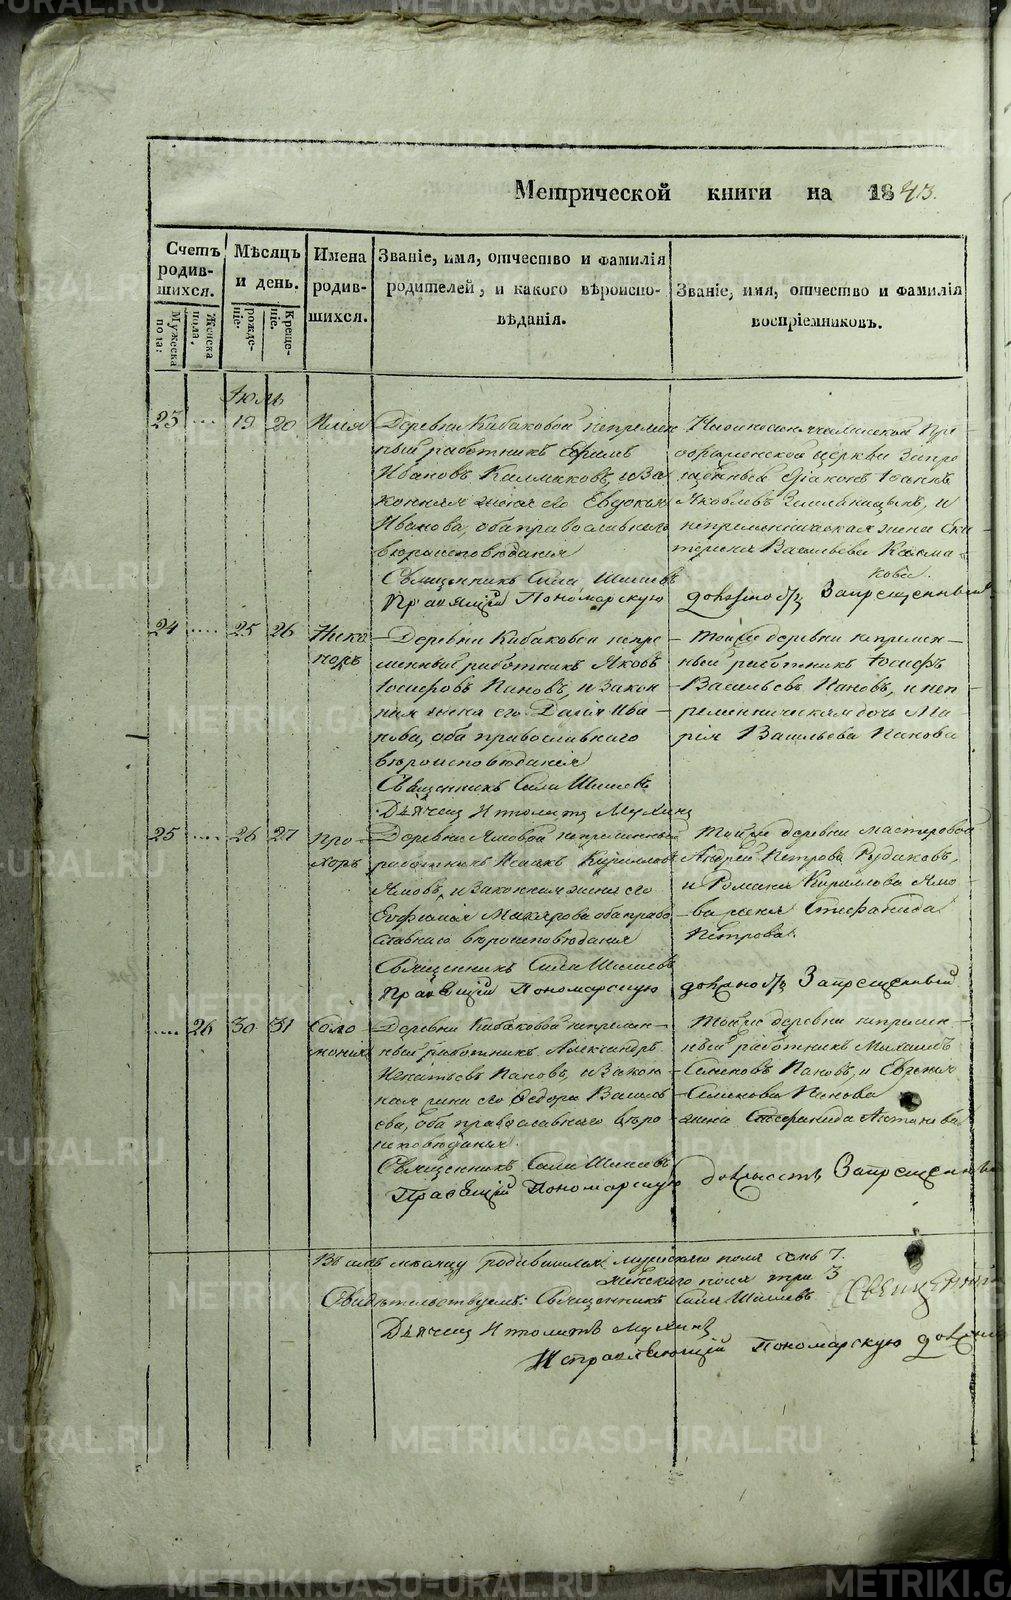 METRIKI.GASO-URAL.RU
Метрической книги на 1843.
Счетъ родив-шихся.
Мѣсяцъ и день.
Имена родив-шихся.
Званіе, имя, отчество и фамилія родителей, и какого вѣроиспо-вѣданія.
Званіе, имя, отчество и фамилія воспріемниковъ.
Мужеска пола:
Женска пола.
рожде-ніе.
Креще-ніе.
Іюль
23 .... 19 20 Илія
Деревни Кибаковой непремен
ный работникъ Ефимъ
Ивановъ Калмаковъ, и за
конная жена его Евдокия
Иванова, оба православнаго
вѣроисповѣданія
Священникъ Сила Шишевъ
Правящій Пономарскую
церкви Запре
щенный Діаконъ Іоаннъ
Яковлевъ и
непременническая жена Ека
терина Васильева Калма
кова.
Запрещенный
24 .... 25 26 Ника
норъ
Деревни Кибаковой непре
менный работникъ Яковъ
Іосифовъ Пановъ, и закон
ная жена его Дарія Ива
нова, оба православнаго
вѣроисповѣданія
Священникъ Сила Шишевъ
Дьячец Иполитъ Мухинъ
Той же деревни непремен
ный работникъ Іосифъ
Васильевъ Пановъ, и неп
ременническая дочь Ма
рія Васильева Панова
25 .... 26 27 Про
хоръ
Деревни Ямовой непременный
работникъ Исаакъ Кириловъ
Ямовъ, и законная жена его
Евфимія Макарова оба право
славнаго вѣроисповѣданія
Священникъ Сила Шишевъ
Правящій Пономарскую
Той же деревни мастеровой
Андрей Петровъ Рудаковъ,
и Романа Кирилова Ямо
ва жена Стефанида
Петрова.
Запрещенный
.... 26 30 31 Соло
монія
Деревни Кибаковой непремен
ный работникъ Александръ
Игнатьевъ Пановъ, и закон
ная жена его Федора Василь
ева, оба православнаго вѣро
исповѣданія.
Священникъ Сила Шишевъ
Правящій Пономарскую
Той же деревни непремен
ный работникъ Михаилъ
Семеновъ Пановъ, и
Семенова Панова
жена Стефанида Антонова
Запрещенный
Въ семъ месяцу родившихся мужескаго пола семь 7.
женскаго пола три 3
Свидѣтельствуемъ: Священникъ Сила Шишевъ
Дьячец Иполитъ Мухинъ
Исправляющій Пономарскую